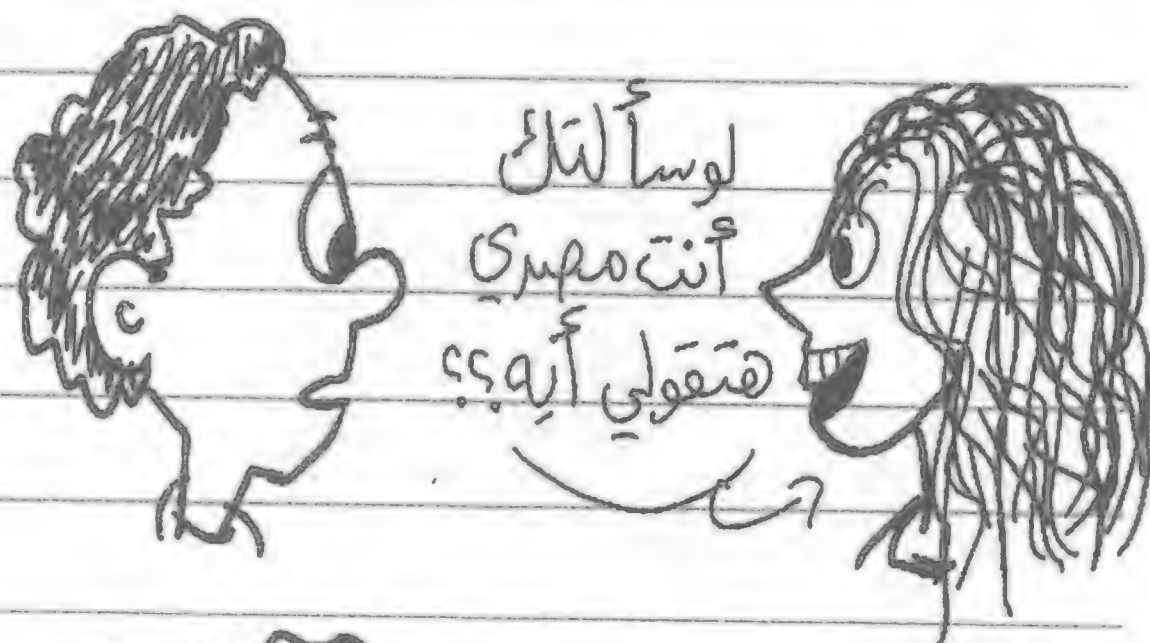 لو سألتك
أنت مصرى
هتقولي أيه؟؟